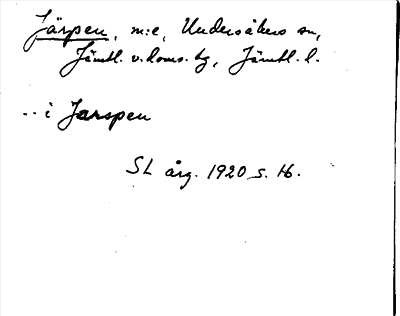 Järpen, m:e, Undersåkers sn,
Jämtl. v. doms. tg, Jämtl. l.
.. i Jarspen
SL årg. 1920 s. 16.